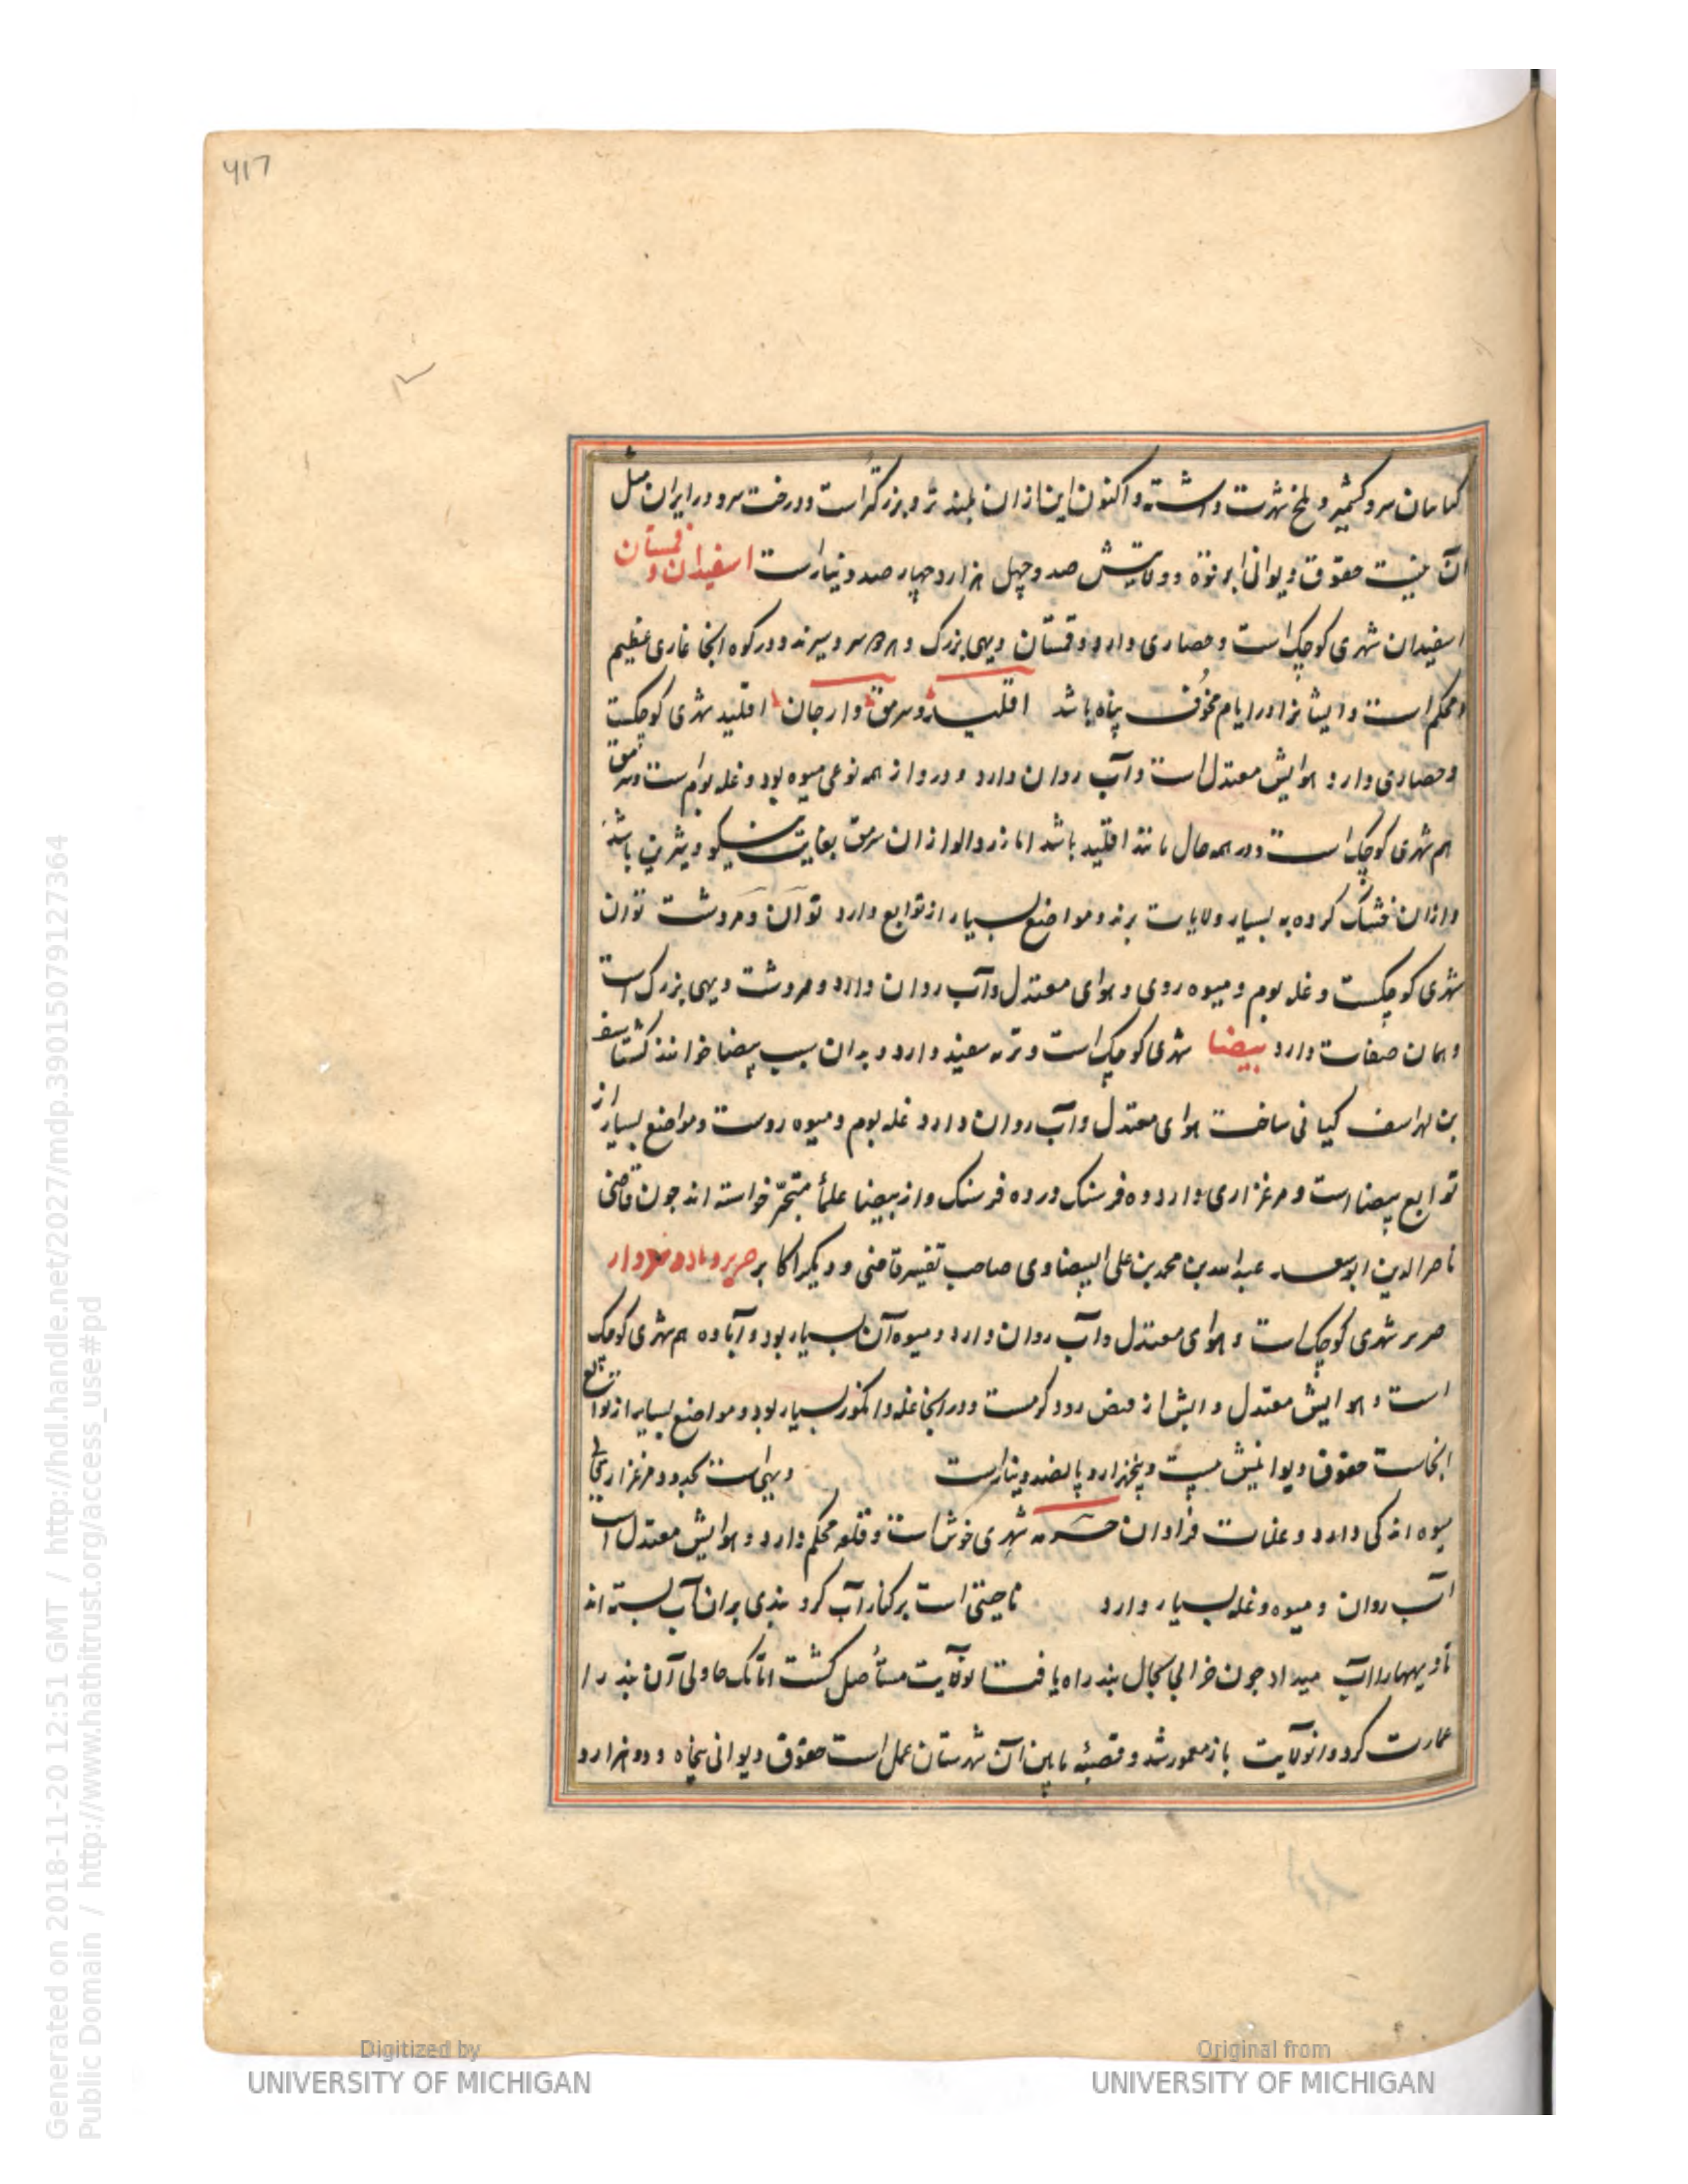 ۴۱۷
کیانیان سرو کشمیر و بلخ شهرت داشته و اکنون این از ان بلند تر و بزرکتر است و درخت سرو در ایران مثل
آن نیست حقوق دیوانی ابرقوه و ولایتش صد و چهل هزار و چهار صد دینارست اسفیدان و قهستان
اسفیدان شهری کوچک است و حصاری دارد و قهستان دیهی بزرک و هر دو سردسیرند و در کوه انجا غاری عظیم
و محکم است و ایشانرا در ایام مخوف پناه باشد اقلید و سرمق و ارجان اقلید شهری کوچکست
و حصاری دارد هوایش معتدل است و آب روان دارد و در و از همه نوعی میوه بود و غله بوم است و سرمق
هم شهری کوچک است و در همه حال مانند اقلید باشد اما زرد الو از ان سرمق بغایت نیکو و شیرین باشد
و از ان خشک کرده به بسیار ولایات برند و مواضع بسیار از توابع دارد توآن و مروشت توان
شهری کوچکست و غله بوم و میوه روی و هوای معتدل و آب روان دارد و مروشت دیهی بزرک است
و همان صفات دارد بیضا شهری کوچک است و تربه سفید دارد و بدان سبب بیضا خوانند کشتاسف
بن لهراسف کیانی ساخت هوای معتدل و آب روان دارد غله بوم و میوه روست و مواضع بسیار از
توابع بیضا است و مرغزاری دارد ده فرسنک در ده فرسنک و از بیضا علمأ متبحر خواسته اند جون قاضی
ناصر الدین ابو سعید عبد الله بن محمد بن علی البیضاوی صاحب تفسیر قاضی و دیکر اکابر
شهری کوچک است و هوای معتدل و آب روان دارد و میوه آن بسیار بود و آباده هم شهری کوچک
است و هوایش معتدل و ابش از فیض رود کرست و در انجا غله و انکور بسیار بود و مواضع بسیار از توابع
انجاست حقوق دیوانیش بیست و پنجهزار و پانصد دینارست دیهی است بحدود مرغزار
میوه اندکی دارد و غلات فراوان خرمه شهری خوش است و قلعه محکم دارد و هوایش معتدل است
آب روان و میوه و غله بسیار دارد ناحیتی است بر کنار آب کر و بندی بر ان آب بسته اند
تا دیهها را آب میداد جون خرابی بحال بند راه یافت انولایت مستأصل کشت اتابک جاولی آن بند را
عمارت کرد و انولایت باز معمور شد و قصبه مایین آن شهرستان عمل است حقوق دیوانی پنجاه و دو هزار و
Generated on 2018-11-20 12:51 GMT / http://hdl.handle.net/2027/mdp.39015079127364
Public Domain / http://www.hathitrust.org/access_use#pd
Digitized by
UNIVERSITY OF MICHIGAN
Original from
UNIVERSITY OF MICHIGAN